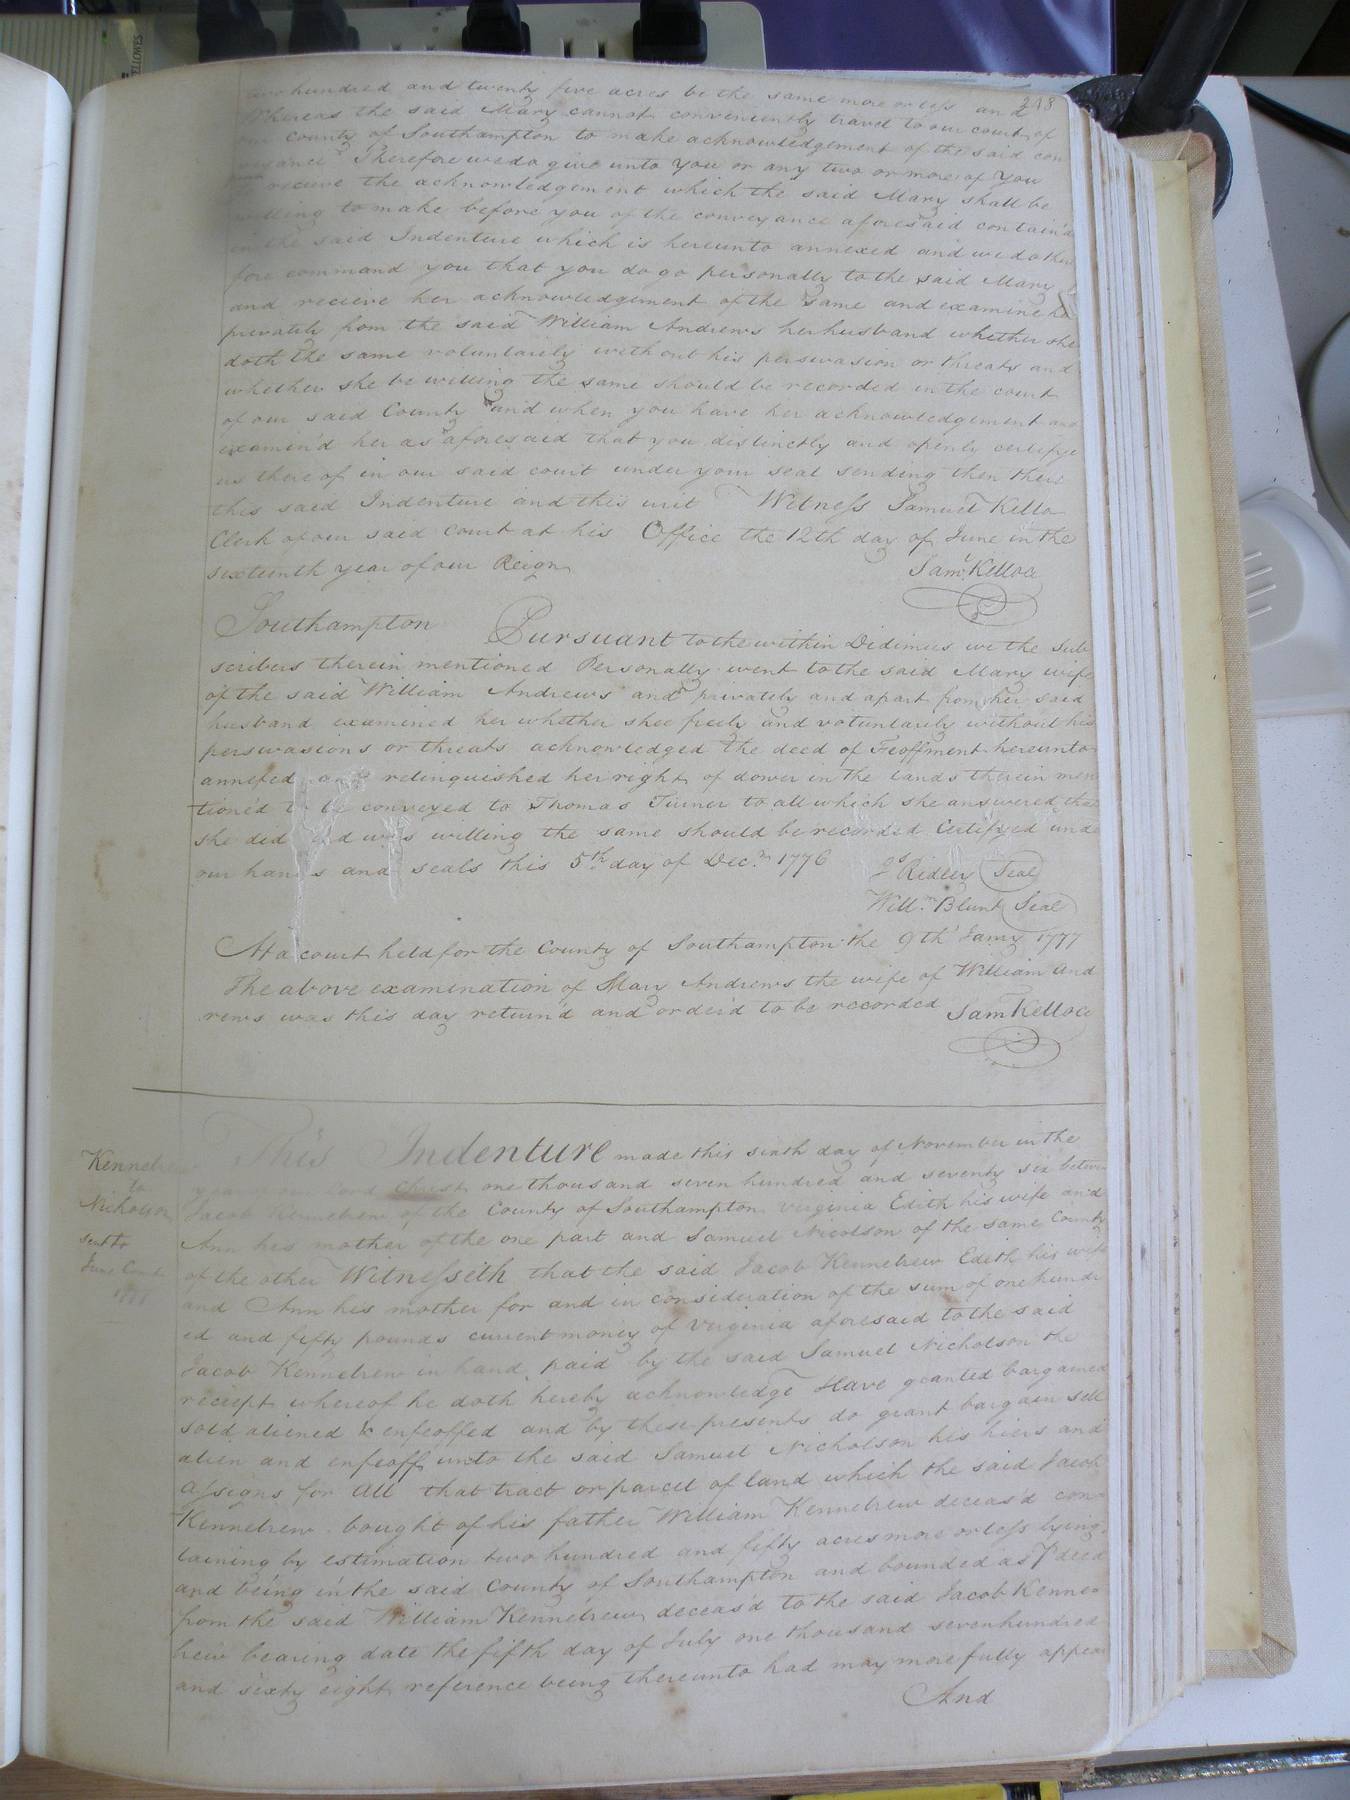 248
two hundred and twenty five acres be the same more or less and
Whereas the said Mary cannot conveniently travel to our court of
our County of Southampton to make acknowledgement of the said con
veyance Therefore we do give unto you or any two or more of you
to recieve the acknowledgement which the said Mary shall be
willing to make before you of the conveyance aforesaid contain'd
in the said Indenture which is hereunto annexed and we do there
fore command you that you do go personally to the said Mary
and recieve her acknowledgement of the same and examine her
privately from the said William Andrews her husband whether she
doth the same voluntarily without his perswasion or threats and
whether she be willing the same should be recorded in the court
of our said County and when you have her acknowledgement and
examin'd her as aforesaid that you distinctly and openly certifye
us there of in our said court under your seal sending then there
this said Indenture and this writ Witness Samuel Kello
Clerk of our said court at his Office the 12th day of June in the
sixteenth year of our Reign
Sam. Kelloe
Southampton Pursuant to the within Didimus we the sub
scribers therein mentioned Personally went to the said Mary wife
of the said William Andrews and privately and apart from her said
husband examined her whether shee freely and voluntarily without his
perswasions or threats acknowledged the deed of Feoffment hereunto
annexed and relinquished her right of dower in the lands therein men
tioned to be conveyed to Thomas Turner to all which she answered that
she did and was willing the same should be recorded Certifyed unde
our hands and seals this 5th day of Decr. 1776 Js Ridley Seal
Willm. Blunt Seal
At a court held for the County of Southampton the 9th Janry 1777
The above examination of Mary Andrews the wife of William And
rews was this day return'd and order'd to be recorded Sam Kelloe
Kennebrew
to
Nicholson
sent to
June Court
This Indenture made this sixth day of November in the
year of our Lord Christ one thousand seven hundred and seventy six between
Jacob Kennebrew of the County of Southampton Virginia Edith his wife and
Ann his mother of the one part and Samuel Nicolson of the same County
of the other Witnesseth that the said Jacob Kennebrew Edith his wife
and Ann his mother for and in consideration of the sum of one hundr
ed and fifty pounds current money of Virginia aforesaid to the said
Jacob Kennebrew in hand paid by the said Samuel Nicholson the
receipt whereof he doth hereby acknowledge Have granted bargained
sold aliened & enfeoffed and by these presents do grant bargain sell
alien and enfeoff unto the said Samuel Nicholson his hiers and
assigns for All that tract or parcel of land which the said Jacob
Kennebrew bought of his father William Kennebrew deceas'd con
taining by estimation two hundred and fifty acres more or less lying
and being in the said County of Southampton and bounded as P deed
from the said William Kennebrew deceas'd to the said Jacob Kenne
brew bearing date the fifth day of July one thousand seven hundred
and sixty eight reference being thereunto had may more fully appear
And